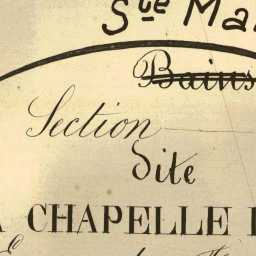 Ste Ma
Bains
Section
Dite
A CHAPELLE